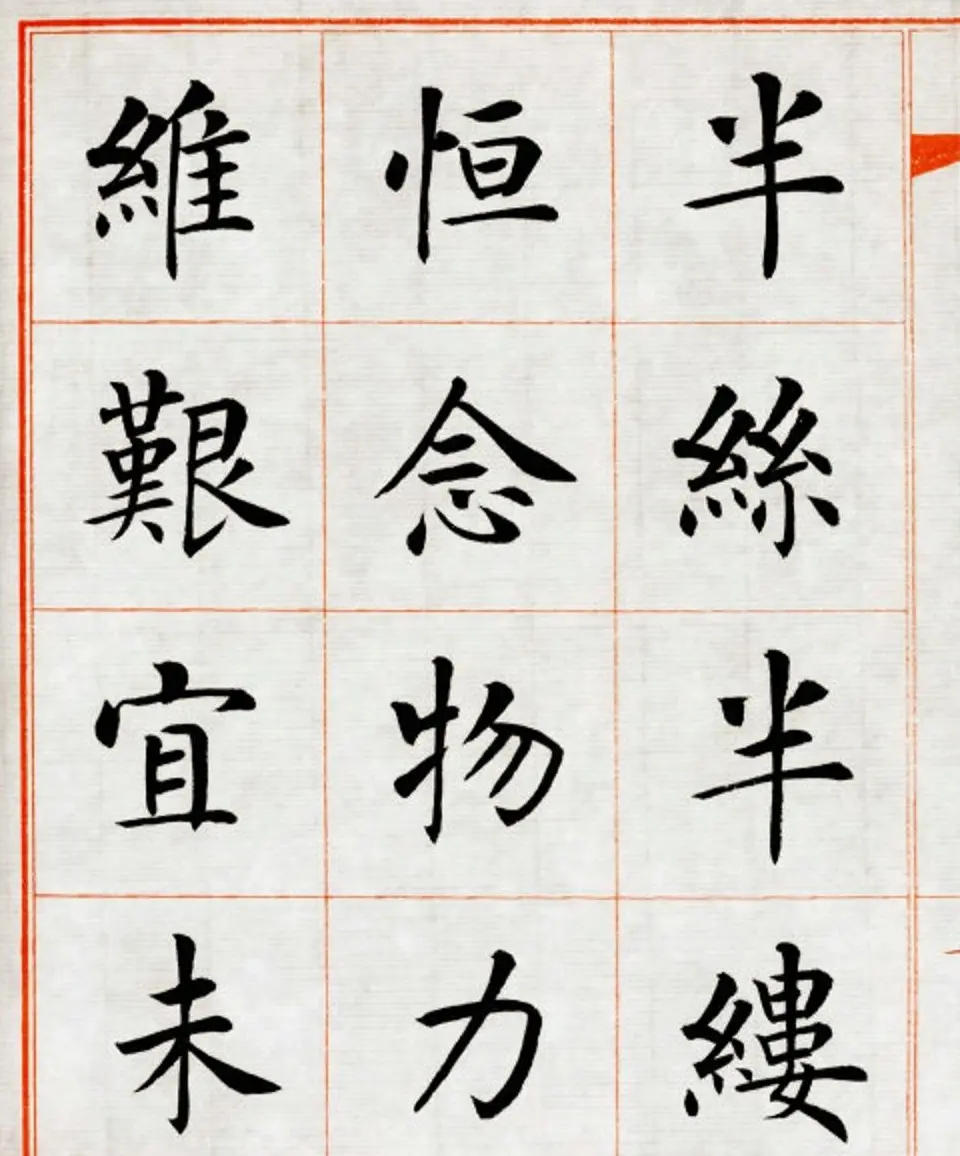 半絲半縷
恒念物力
維艱宜未